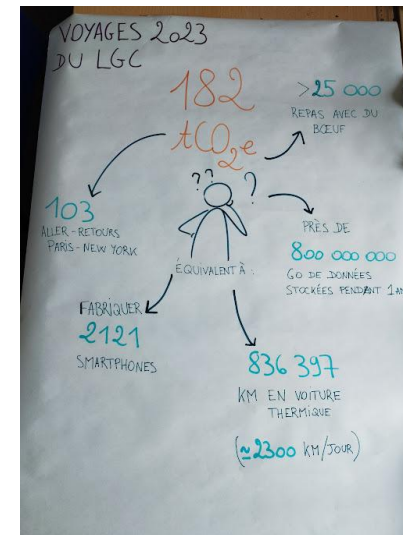 VOYAGES 2023
DU LGC
182
tCO2e
>25 000
REPAS AVEC DU
BŒUF
?? ?
103
ALLER-RETOURS
PARIS-NEW YORK
PRÈS DE
800 000 000
GO DE DONNÉES
STOCKÉES PENDANT 1 AN
ÉQUIVALENT À :
FABRIQUER
2121
SMARTPHONES
836 397
KM EN VOITURE
THERMIQUE
(≃2300 KM/JOUR)